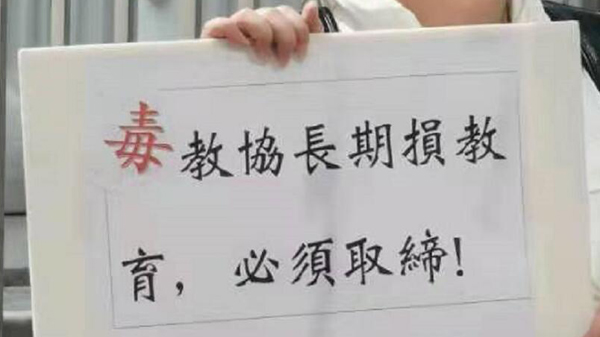 毒教協長期損教
育，必須取締!